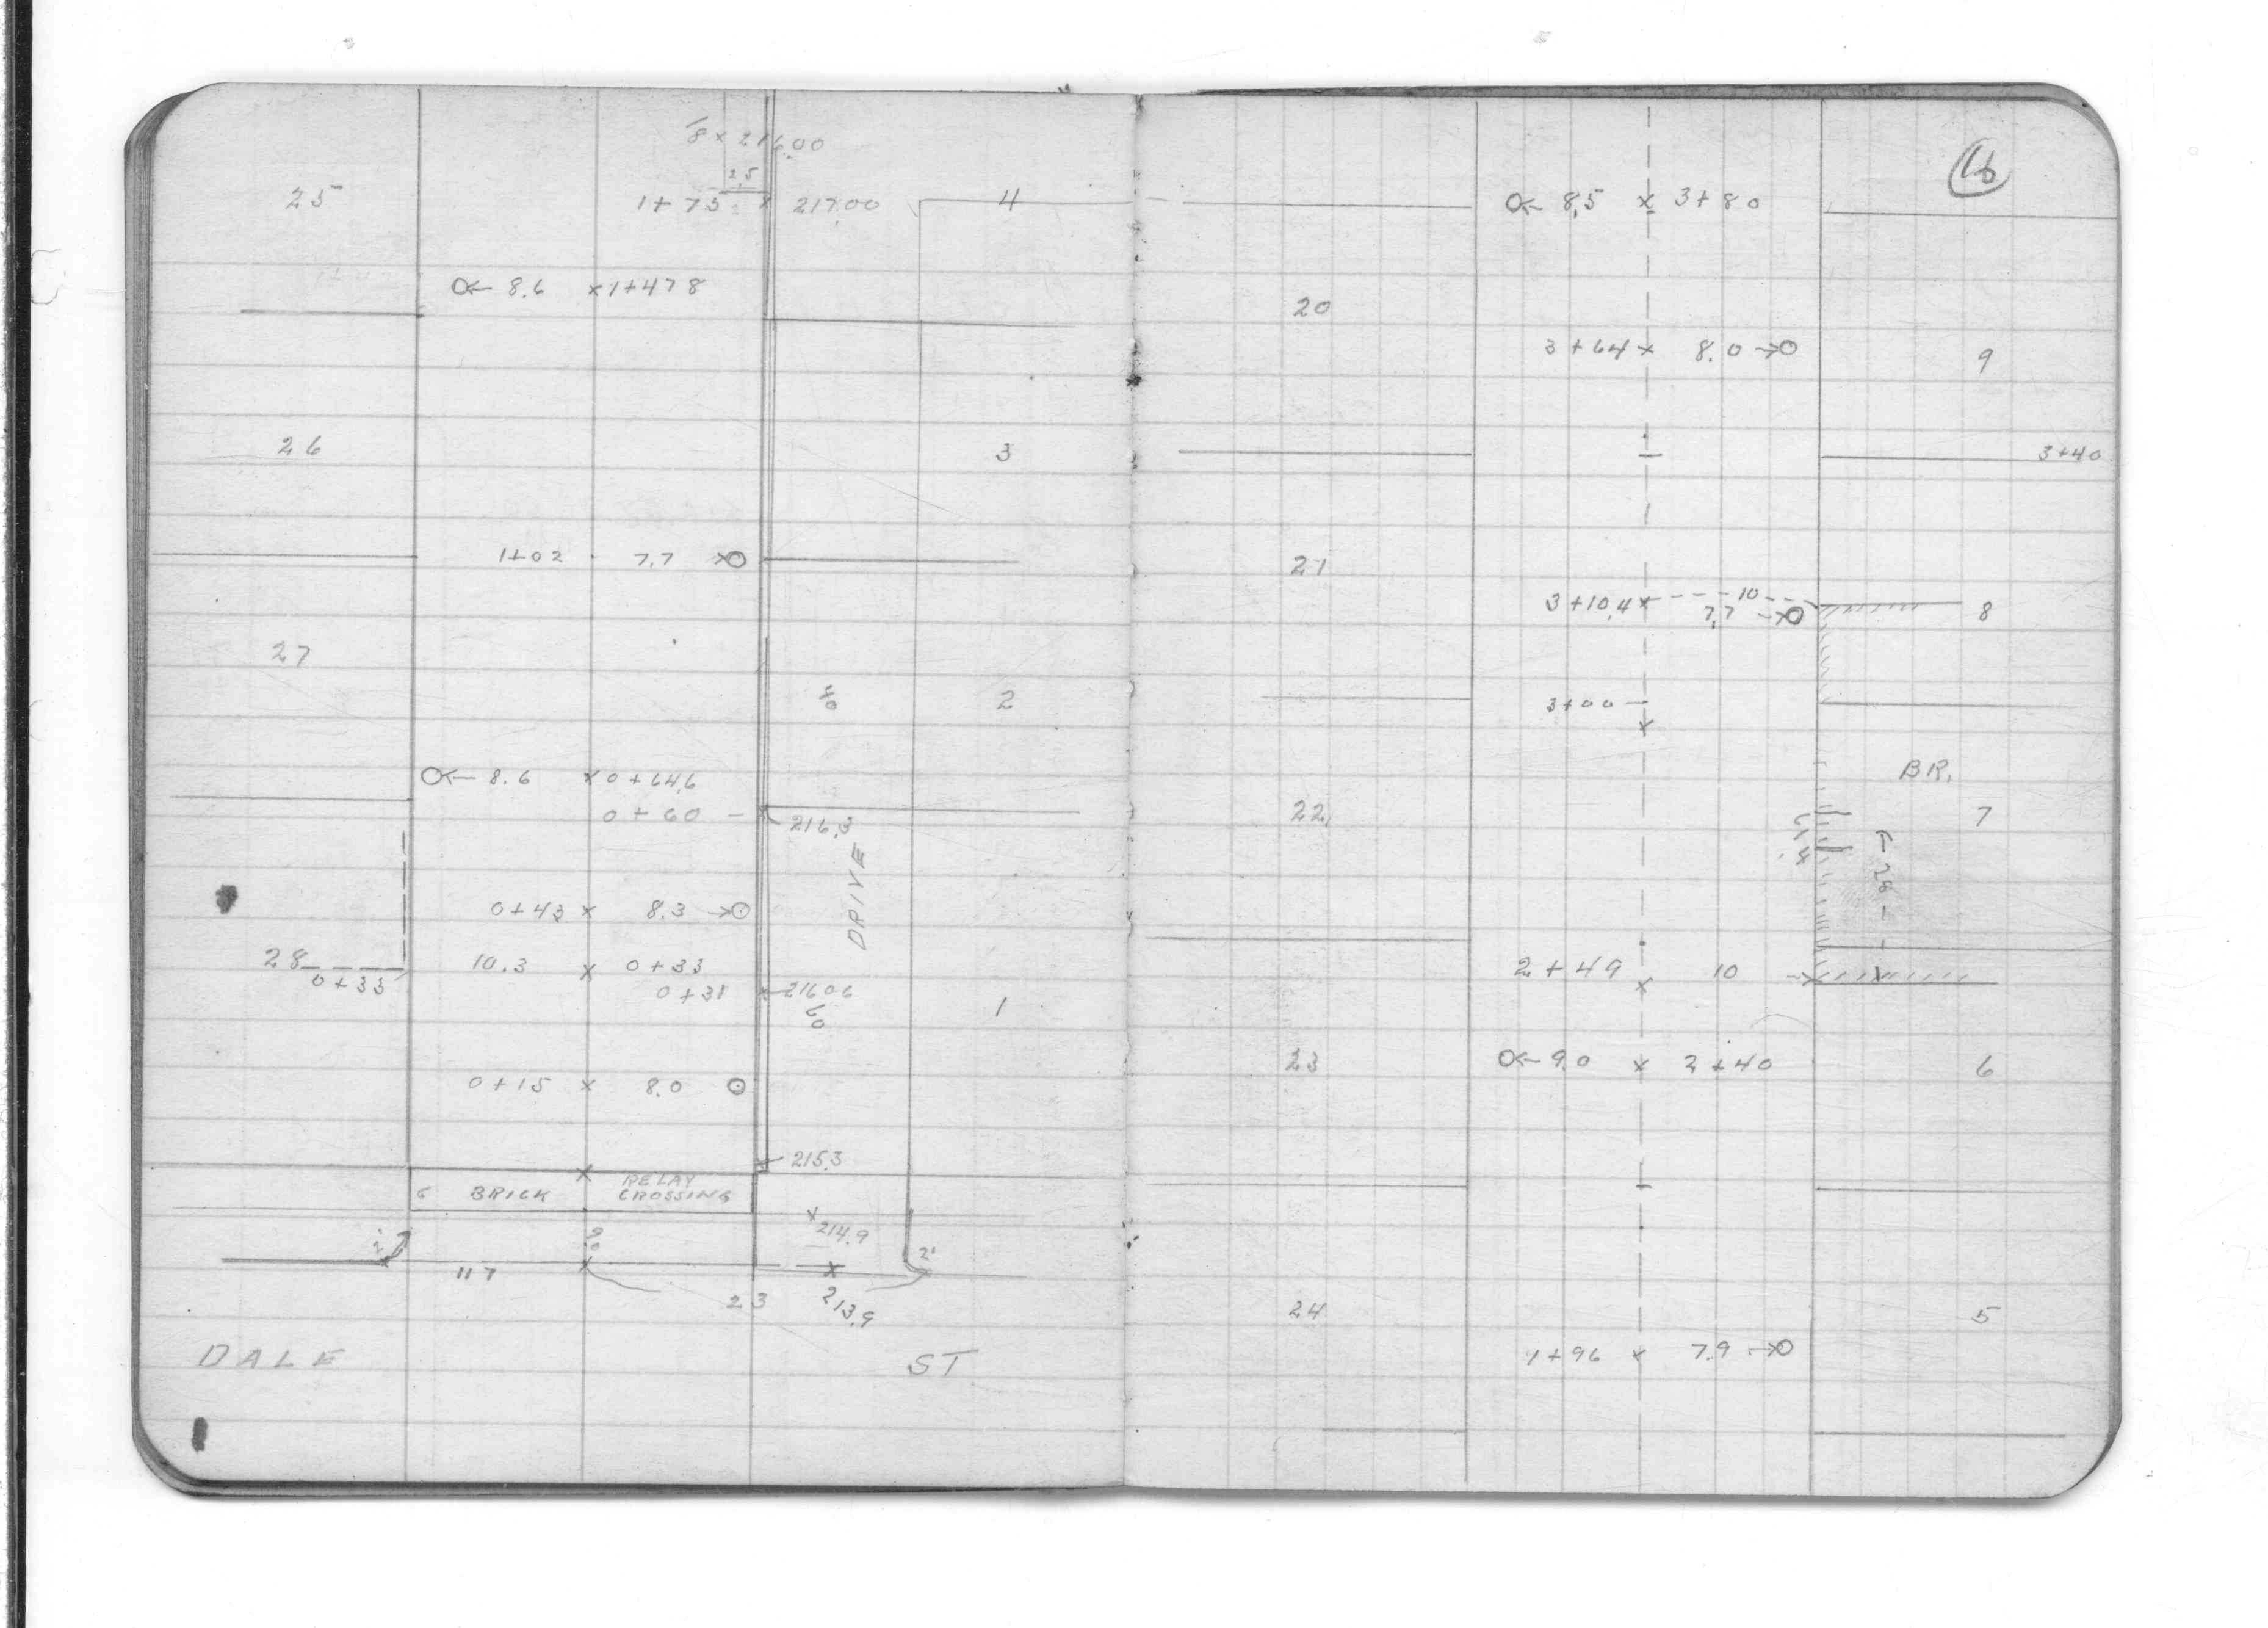 8 x 216.00
2.5
25 1+75 x 217.00 4
8.6 x 1+478
26 3
1+02 7.7
27
8/0 2
8.6 x 0+64.6
0+60 - 216.3
DRIVE
0+43 x 8.3
28 10.3 x 0+33
0+33 0+31 216.06
1
0+15 x 8.0
215.3
6 BRICK RELAY
CROSSING
214.9
2' 2'
117
23 213.9
DALE ST
16
8.5 x 3+80
20
3+64 x 8.0 9
3+40
21
3+10.4 x 10
7.7 8
3+00
x
BR.
22 7
28
2+49 x 10
23 9.0 x 2+40 6
24 5
1+96 x 7.9